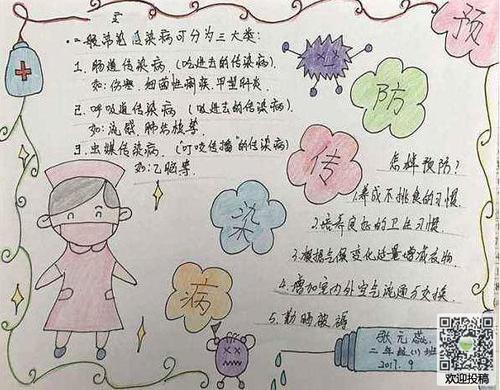 预
防
传
染
病
一般常见传染病可分为三大类:
1. 肠道传染病(吃进去的传染病)
如:伤寒、细菌性痢疾、甲型肝炎.
2. 呼吸道传染病(吸进去的传染病)
如:流感 肺结核等.
3. 虫媒传染病("叮咬传播"的传染病)
如:乙脑等
怎样预防?
1.养成不挑食的习惯
2.培养良好的卫生习惯
3.根据气候变化适量增减衣物
4.增加室内外空气流通与交换.
5.勤晒被褥
二年级(1)班
2017.9
欢迎投稿